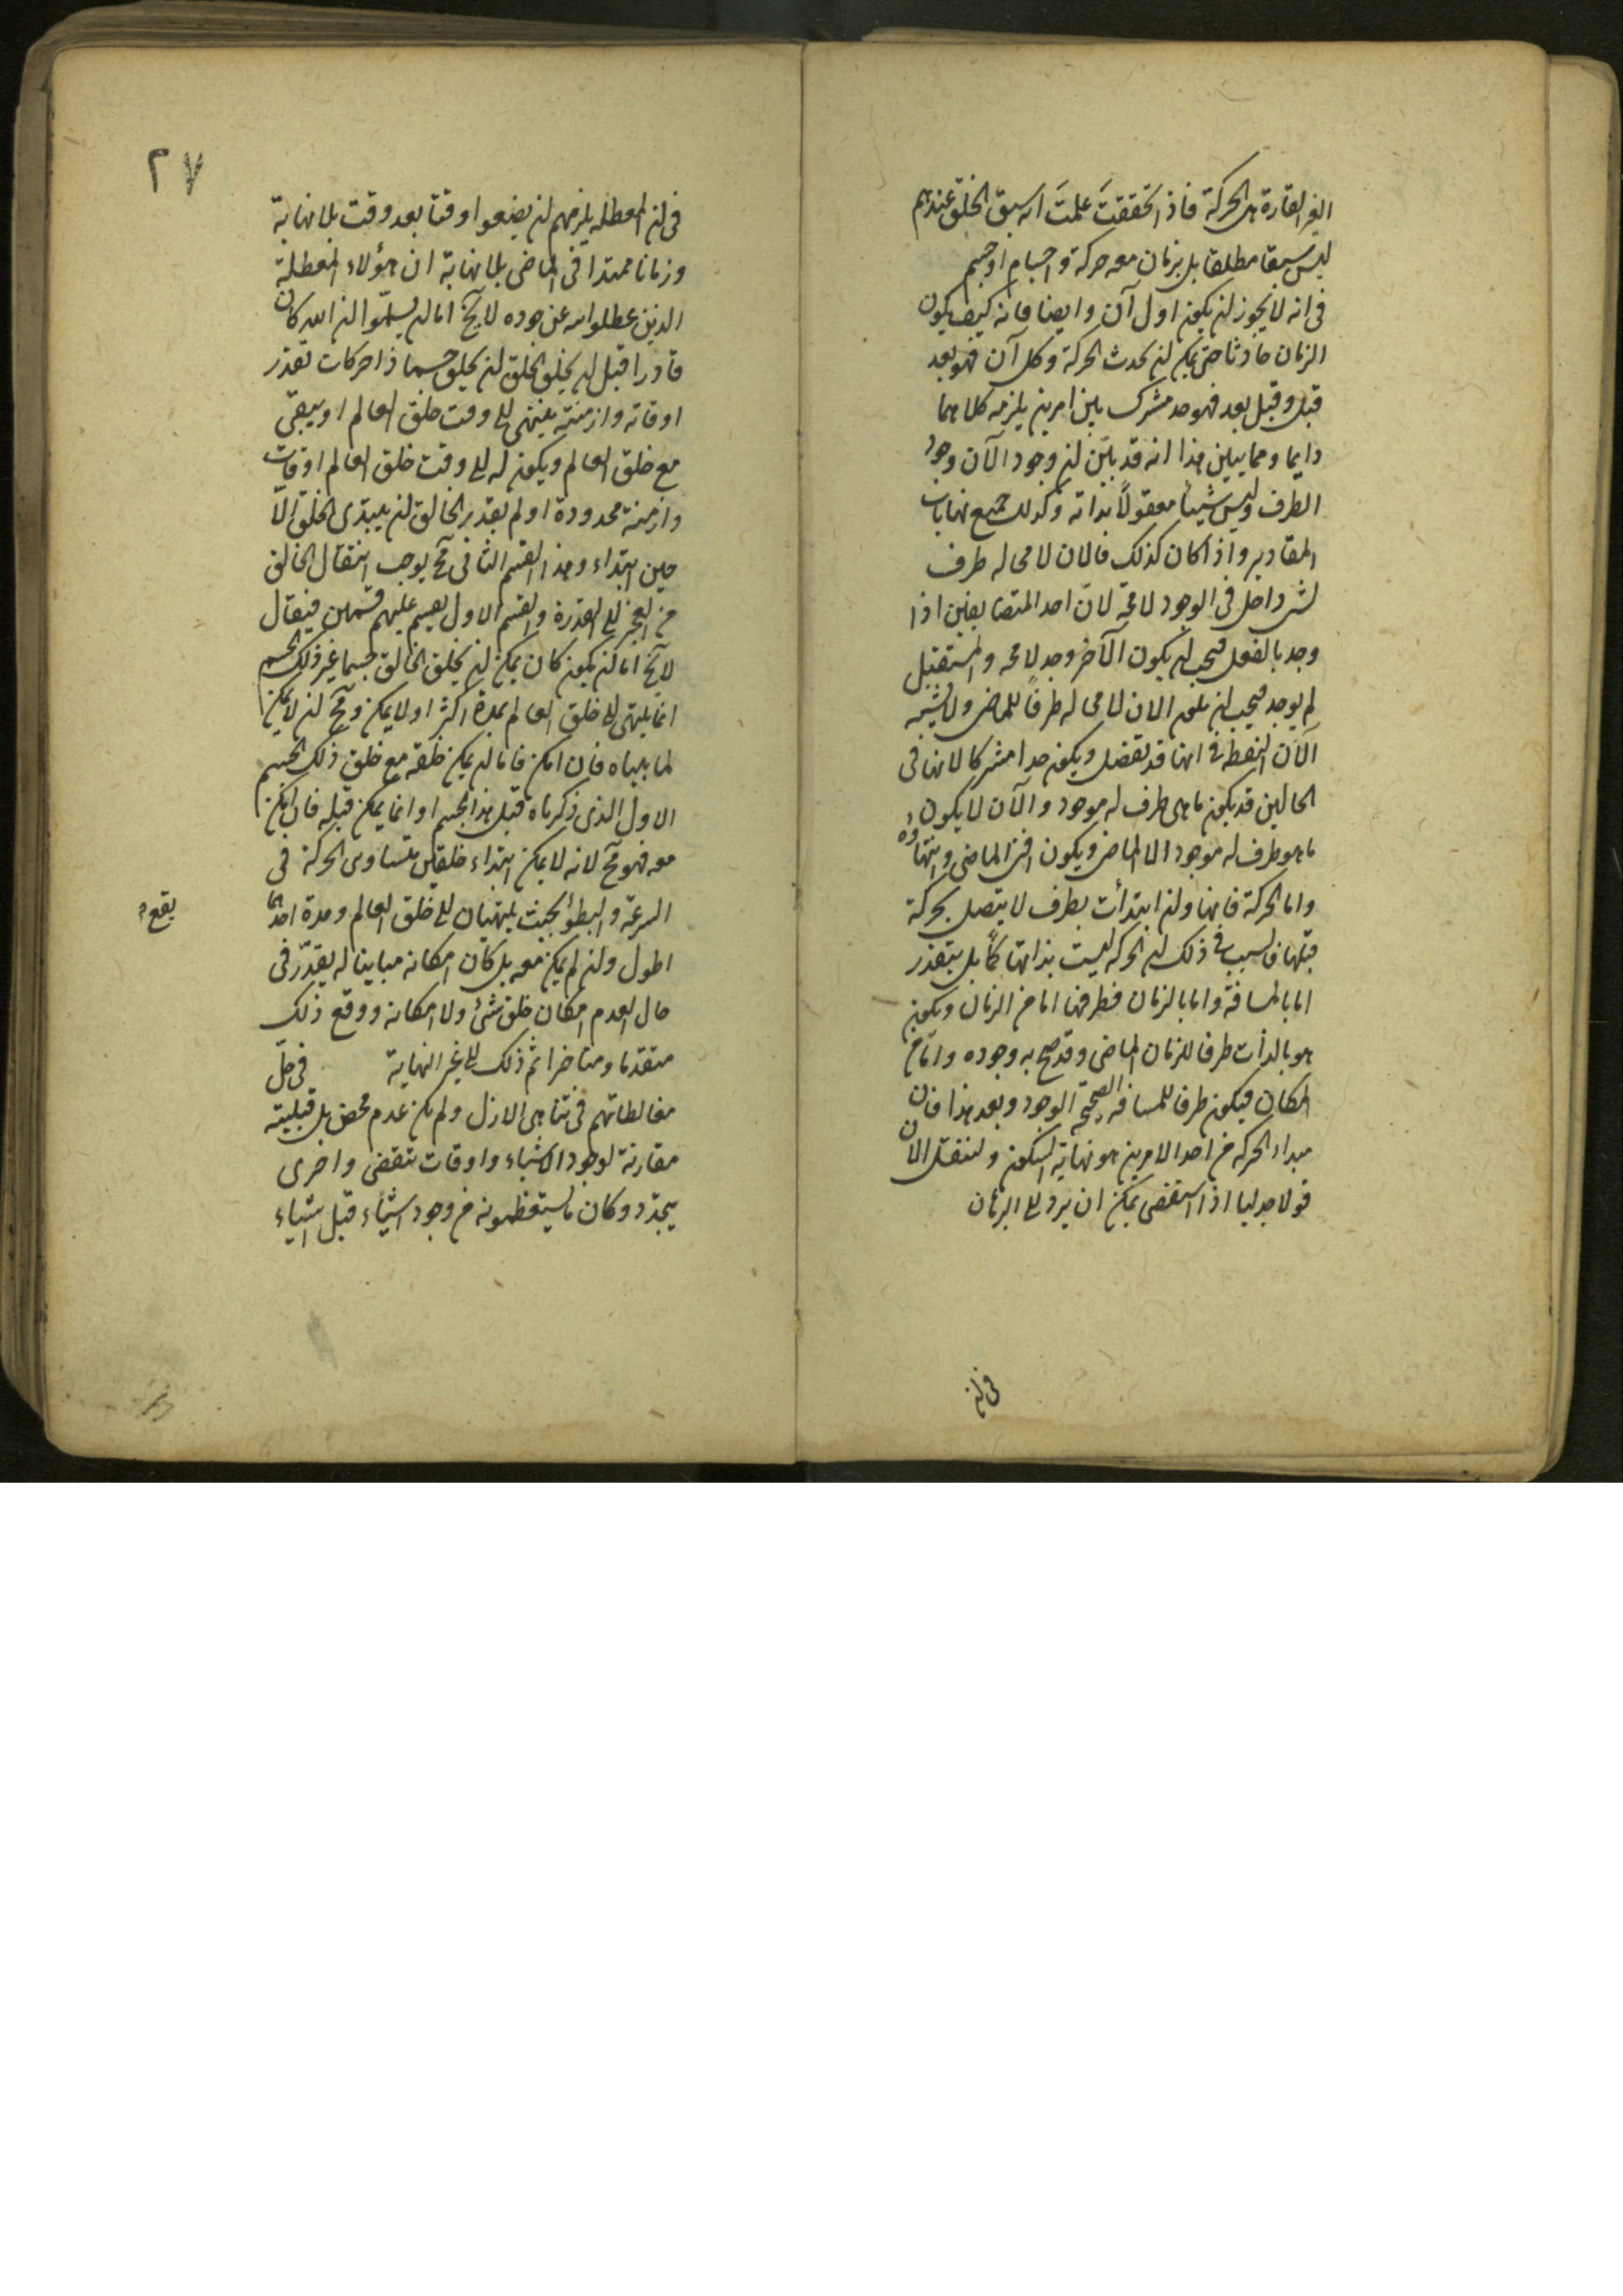 الغير القارة هى الحركة فاذا تحققت علمتَ انه سبق الخلق عندهم
ليس سبقا مطلقا بل بزمان معه حركة و اجسام او جسم
فى انه لا يجوز ان يكون اول آن و ايضا فانه كيف يكون
الزمان حادثا حتى يمكن ان يحدث الحركة و كل آن فهو بعد
قبل و قبل بعد فهو حد مشترك بين امرين يلزمه كلاهما
دايما و مما يبين هذا انه قد بيّن ان وجود الآن وجود
الطرف و ليس شيئا معقولاً بذاته و كذلك جميع نهايات
المقادير و اذا كان كذلك فالآن لا محاله طرف
لشئ داخل فى الوجود لا محة لانّ احد المتضايفين اذا
وجد بالفعل فيجب ان يكون الآخر وجد لا محه و المستقبل
لم يوجد فيجب ان يكون الان لا محاله طرفاً للماضى و لا يشبه
الآن النقطة فى انها قد تفصل و يكون حدا مشتركا لانها فى
الحالين قد يكون ما هى طرف له موجود و الآن لا يكون
ما هو طرف له موجود الا الماضى و يكون افنى الماضى و انتهاؤه
و اما الحركة فانها و ان ابتدأت بطرف لا يتصل بحركة
قبلها فالسبب فى ذلك ان الحركه ليست بذاتها كماً بل يتقدر
اما بالمسافة و اما بالزمان فطرفها اما من الزمان و يكون
هو بالذات طرفا للزمان الماضى و قد صح به وجوده و امّا من
المكان فيكون طرفا للمسافه الصحيحة الوجود و بعد هذا فان
مبداء الحركه من احد الامرين هو نهاية السكون و لننقل الآن
قولا جدليا اذا استقصى يمكن ان يرد الى البرهان
فى ان
٢٧
فى ان المعطله يلزمهم ان يضعوا وقتا بعد وقت بلا نهاية
و زمانا ممتدا فى الماضى بلا نهاية ان هؤلاء المعطلة
الذين عطلوا الله عن جوده لا يخ اما ان يسلّموا ان الله كان
قادرا قبل ان يخلق الخلق ان يخلق جسما ذا حركات تقدر
اوقاته و ازمنته ينتهى الى وقت خلق العالم او يبقى
مع خلق العالم و يكون له الى وقت خلق العالم اوقات
و ازمنة محدودة او لم يقدر الخالق ان يبتدى الخلق الّا
حين ابتداء و هذا القسم الثانى مح يوجب انتقال الخالق
من العجز الى القدرة و القسم الاول يقسم عليهم قسمين فيقال
لا يخ اما ان يكون كان يمكن ان يخلق الخالق جسما غير ذلك الجسم
انما ينتهى الى خلق العالم بمدة اكثر او لا يمكن و مح ان لا يمكن
لما بيناه فان امكن فاما ان يمكن خلقه مع خلق ذلك الجسم
الاول الذى ذكرناه قبل هذا الجسم او انما يمكن قبله فان امكن
معه فهو مح لانه لا يمكن ابتداء خلقين متساوى الحركة فى
السرعة و البطؤ بحيث ينتهيان الى خلق العالم و مدة احدهما
يقع
اطول و ان لم يمكن معه بل كان امكانه مباينا له يقدّر فى
حال العدم امكان خلق شئ و لا امكانه و وقع ذلك
متقدما و متاخرا ثم ذلك الى غير النهاية فى حلّ
مغالطاتهم فى تناهى الازل و لم يكن عدم محض بل قبليته
مقارنة لوجود الاشياء و اوقات تنقضى و اخرى
يتجدّد و كان ما يستفظعونه من وجود اشياء قبل اشياء